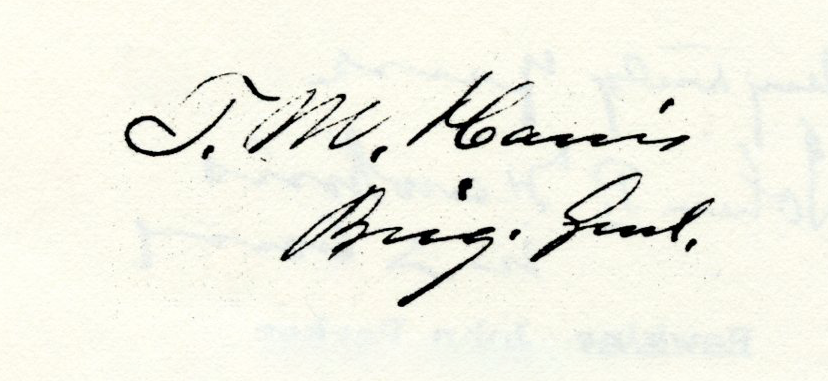 T. M. Harris
Brig. Genl.